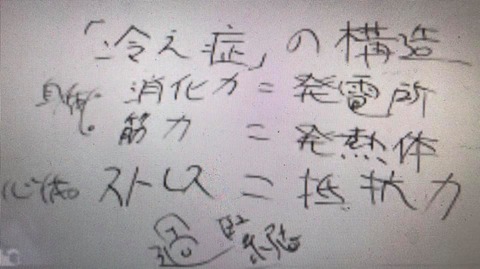 「冷え症」の構造
消化力=発電所
筋力=発熱体
ストレス=抵抗力